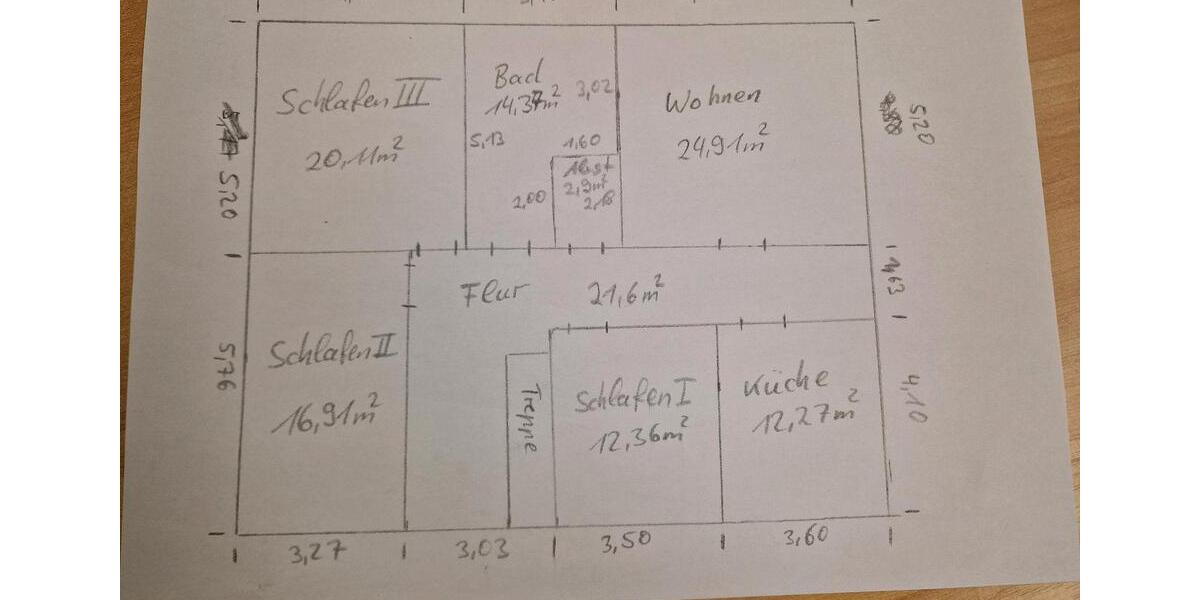 Schlafen III
20,11m²
Bad
14,37m²
3,02
5,13
1,60
Abst
2,9m²
2,00
2,18
Wohnen
24,91m²
5,20
5,20
Flur
21,6m²
1,63
Schlafen II
16,91m²
5,76
Treppe
Schlafen I
12,36m²
Küche
12,27m²
4,10
3,27
3,03
3,50
3,60